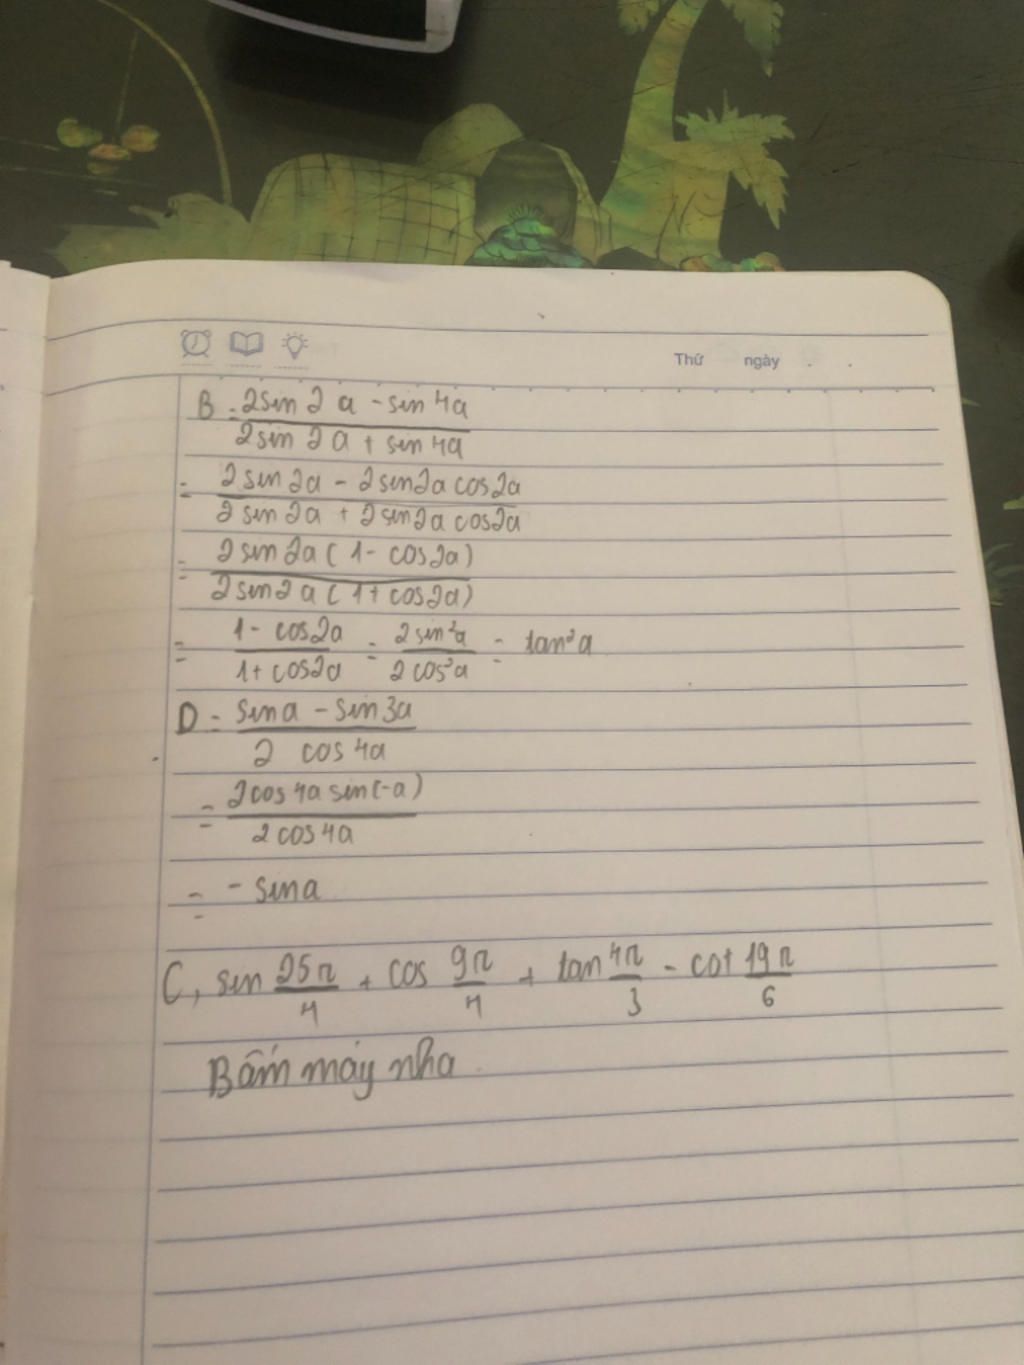 Thứ ngày
B = (2sin2a - sin4a)/(2sin2a + sin4a)
= (2sin2a - 2sin2a cos2a)/(2sin2a + 2sin2a cos2a)
= (2sin2a(1 - cos2a))/(2sin2a(1 + cos2a))
= (1 - cos2a)/(1 + cos2a) = (2sin²a)/(2cos²a) = tan²a
D = (sina - sin3a)/(2 cos4a)
= (2cos4a sin(-a))/(2cos4a)
= - sina
C, sin 25π/4 + cos 9π/4 + tan 4π/3 - cot 19π/6
Bấm máy nha